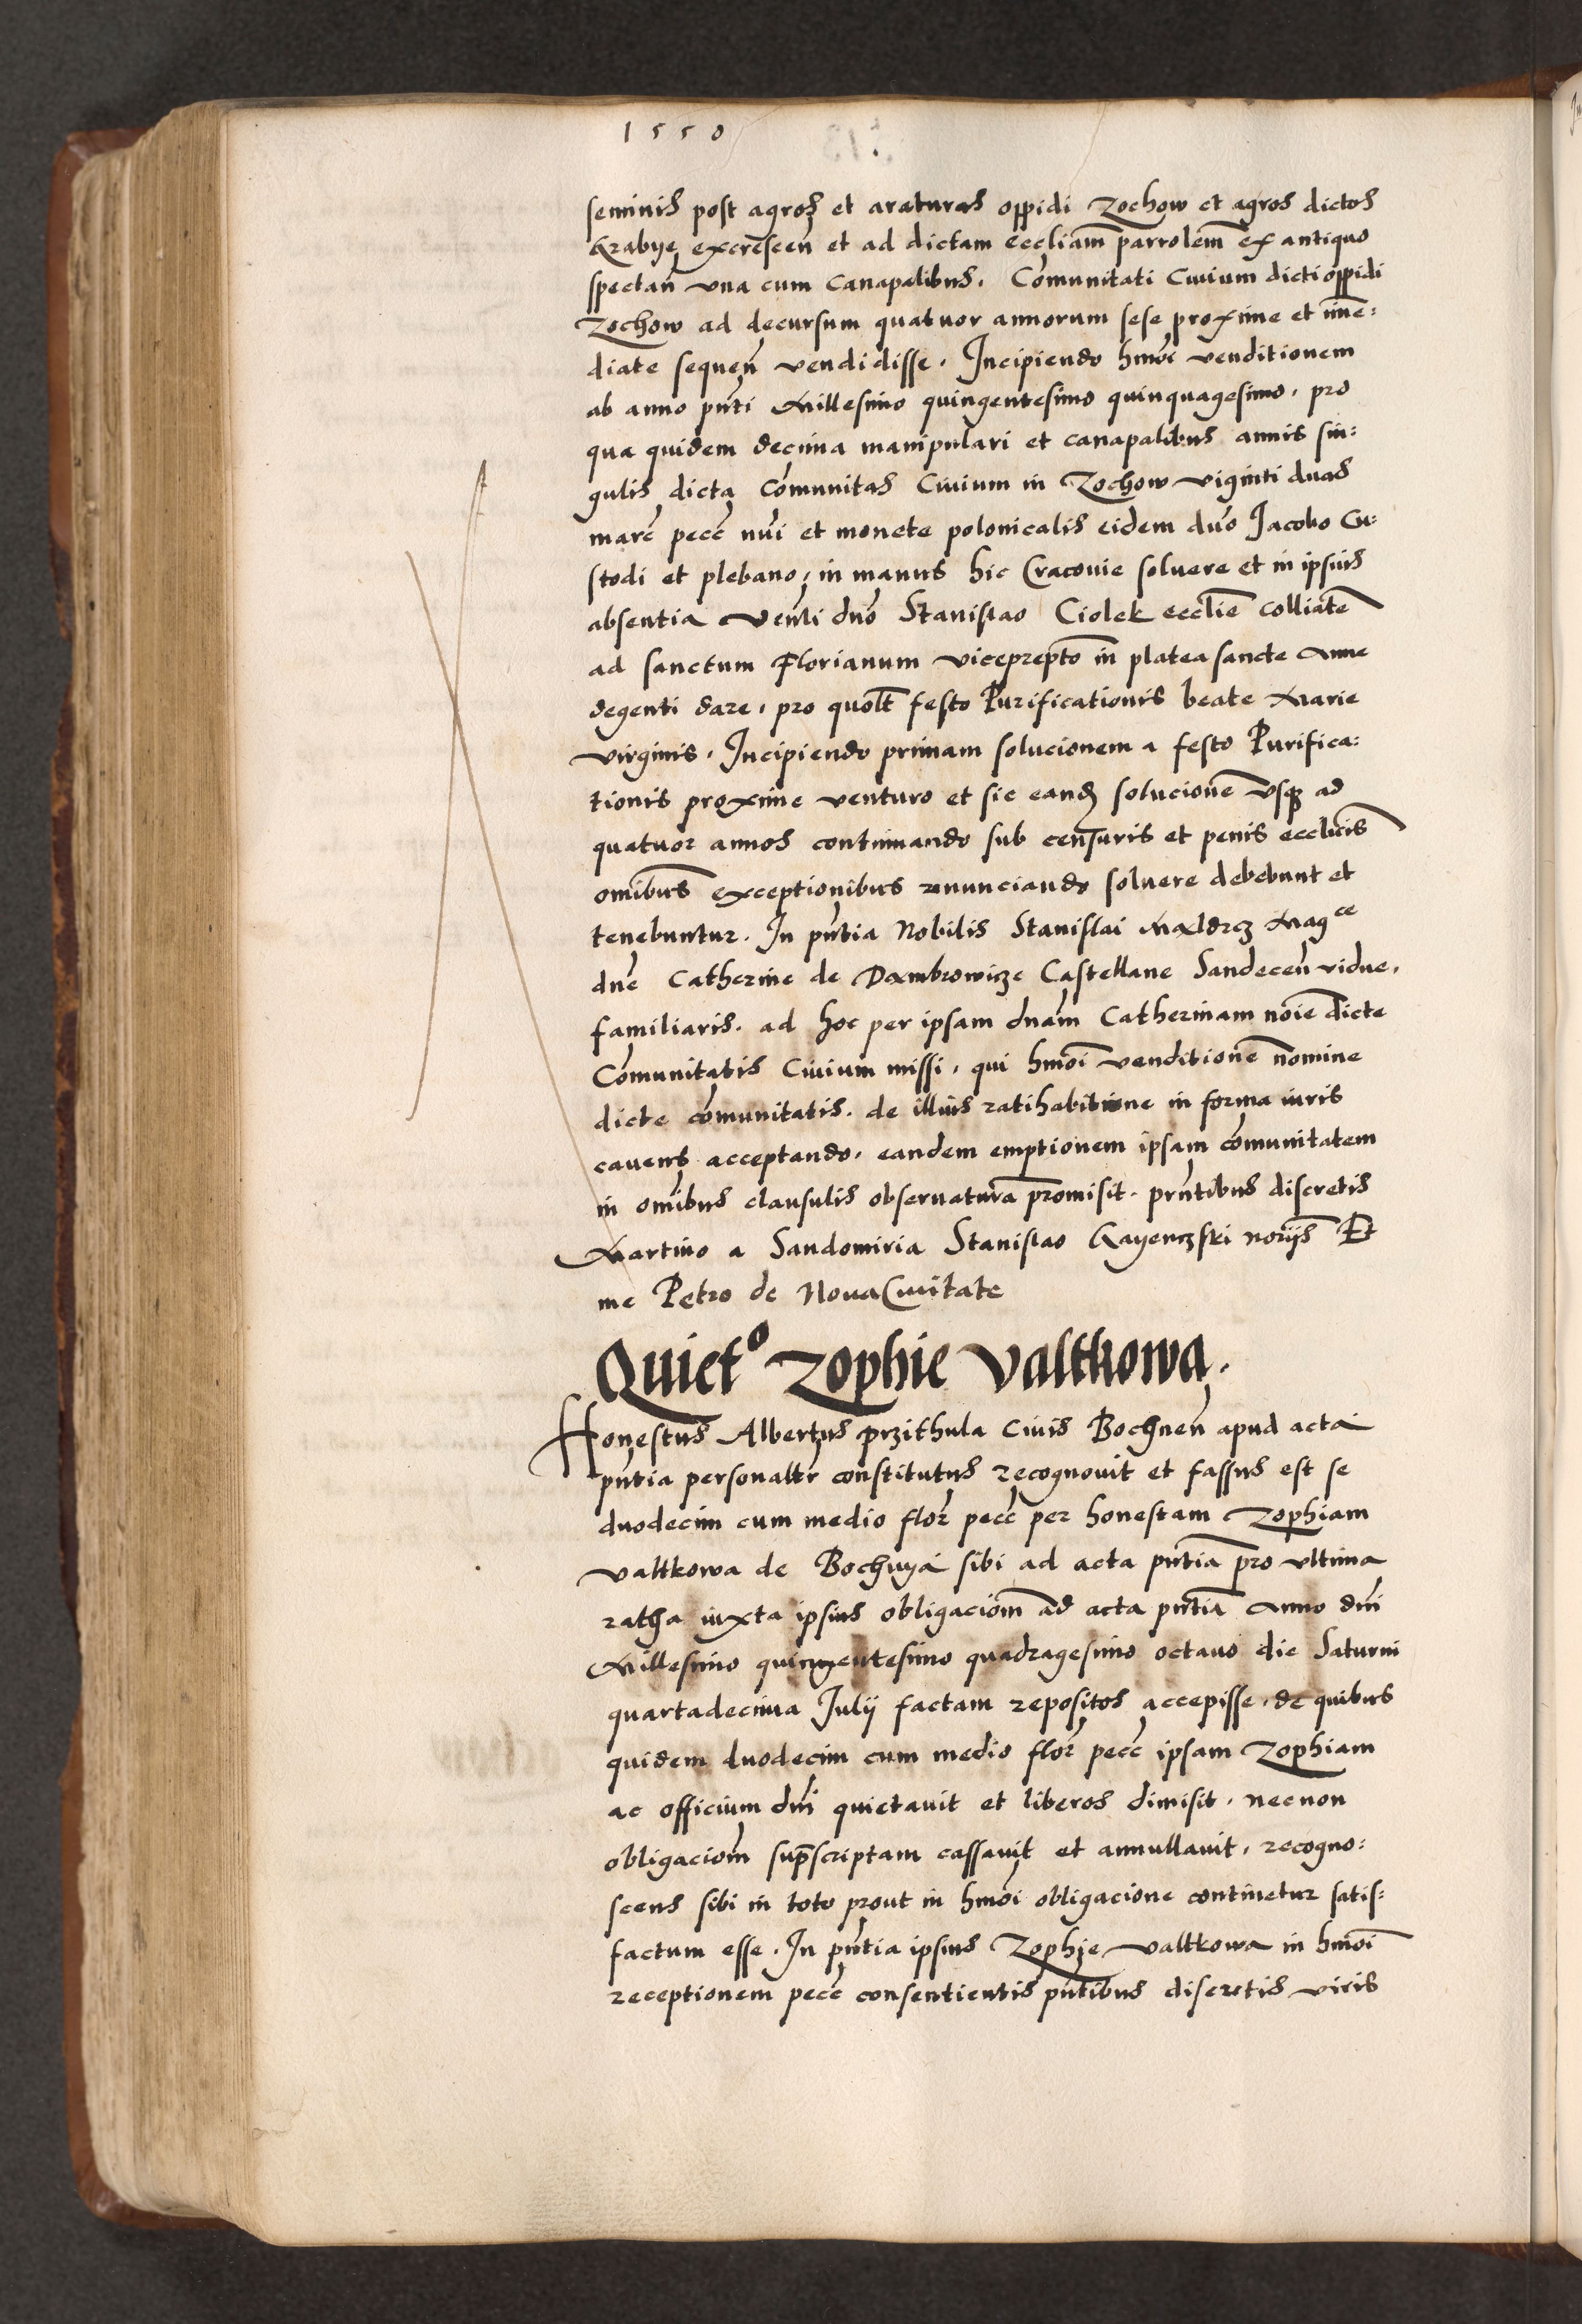 1550
seminis post agros et araturas oppidi Zochow et agros dictos
Krabye excrescen̄ et ad dictam eccliam̄ parrolem̄ ex antiquo
spectan̄ vna cum Canapalibus. Com̄unitati Ciuium dicti oppidi
Zochow ad decursum quatuor annorum sese proxime et im̄e:
diate sequen̄ vendidisse. Incipiendo hmōi venditionem
ab anno pn̄ti Millesimo quingentesimo quinquagesimo. pro
qua quidem decima manipulari et canapalibus annis sin:
gulis dicta Com̄unitas Ciuium in Zochow viginti duas
marc̄ pecc̄ nūi et monete polonicalis eidem dn̄o Jacobo Cu:
stodi et plebano, in manus hic Cracouie soluere et in ipsius
absentia Ven̄li dn̄o Stanislao Ciolek ecclie̅ colliate̅
ad sanctum Florianum viceprepto̅ in platea sancte Anne
degenti dare. pro quolt̄ festo Purificationis beate Marie
virginis. Incipiendo primam solucionem a festo Purifica:
tionis proxime venturo et sic eand solucione̅ vsqz ad
quatuor annos continuando sub censuris et penis ecclicis̄
omībus exceptionibus renunciando soluere debebunt et
tenebuntur. In pn̄tia Nobilis Stanislai Maldrz Magce
dn̄e Catherine de Dambrowicze Castellane Sandecen̄ vidue.
familiaris. ad hoc per ipsam dnam̄ Catherinam noīe dicte
Com̄unitatis Ciuium missi. qui hmōi venditione̅ nomine
dicte com̄unitatis. de illius ratihabitione in forma iuris
cauens acceptando. eandem emptionem ipsam com̄unitatem
in omībus clausulis obseruatura̅ promisit. prn̄tibus discretis
Martino a Sandomiria Stanislao Kayenczski norijs̄ Et
me Petro de Noua Ciuitate
Quieto Zophie Valtkowa.
Honestus Albertus Przithula Ciuis Bochnen̄ apud acta
pn̄tia personaltr̄ constitutus recognouit et fassus est se
duodecim cum medio flor̄ pecc̄ per honestam Zophiam
Valtkowa de Bochnya sibi ad acta pn̄tia pro vltima
ratha iuxta ipsius obligaciom̄ ad acta pn̄tia Anno dn̄i
Millesimo quingentesimo quadragesimo octauo die Saturni
quartadecima Julij factam repositos accepisse. de quibus
quidem duodecim cum medio flor̄ pecc̄ ipsam Zophiam
ac officium dn̄i quietauit et liberos dimisit. necnon
obligaciom̄ sup̄scriptam cassauit et annullauit. recogno:
scens sibi in toto prout in hmōi obligacione continetur satis:
factum esse. In pn̄tia ipsius Zophie Valtkowa in hmōi
receptionem pecc̄ consentientis pn̄tibus discretis viris